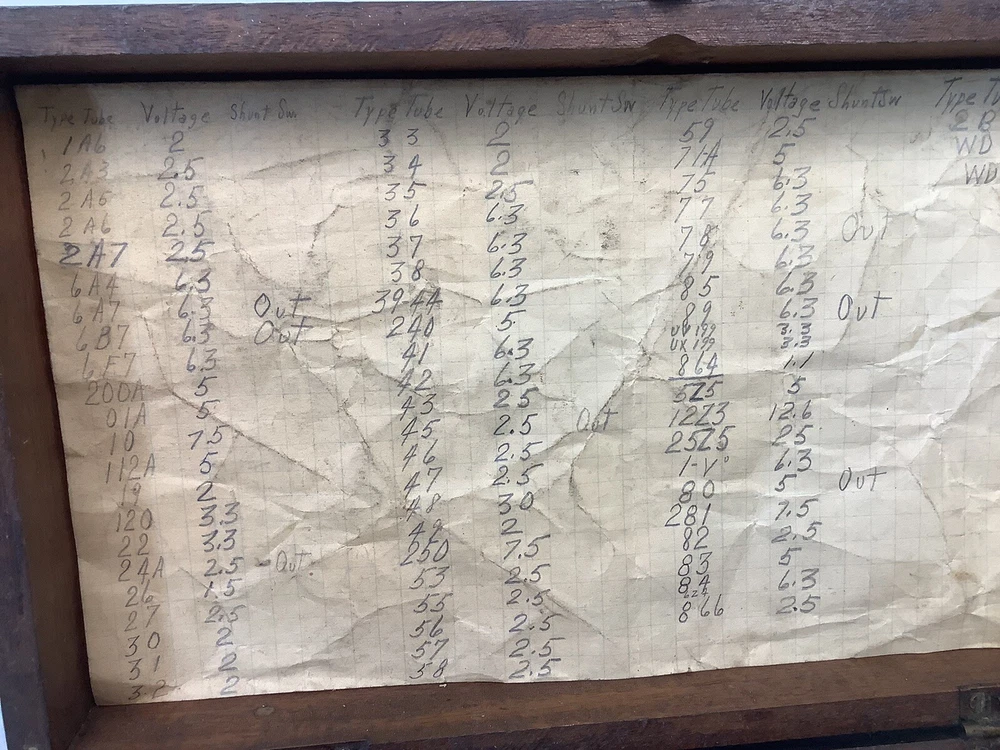 Type Tube Voltage Shunt Sw.
1A6 2
2A3 2.5
2A5 2.5
2A6 2.5
2A7 2.5
6A4 6.3
6A7 6.3 Out
6B7 6.3 Out
6F7 6.3
200A 5
01A 5
10 7.5
112A 5
19 2
120 3.3
22 3.3
24A 2.5 - Out.
26 1.5
27 2.5
30 2
31 2
32 2
Type Tube Voltage Shunt Sw
33 2
34 2
35 2.5
36 6.3
37 6.3
38 6.3
39-44 6.3
240 5
41 6.3
42 6.3
43 25
45 2.5 Out
46 2.5
47 2.5
48 30
49 2
250 7.5
53 2.5
55 2.5
56 2.5
57 2.5
58 2.5
Type Tube Voltage Shunt Sw
59 2.5
71A 5
75 6.3
77 6.3
78 6.3 Out
79 6.3
85 6.3
89 6.3 Out
UV 199 3.3
UX 199 3.3
864 1.1
5Z5 5
12Z3 12.6
25Z5 25
1-V 6.3
80 5 Out
281 7.5
82 2.5
83 5
84 6.3
6Z4
866 2.5
Type Tu
2 B
WD
WD